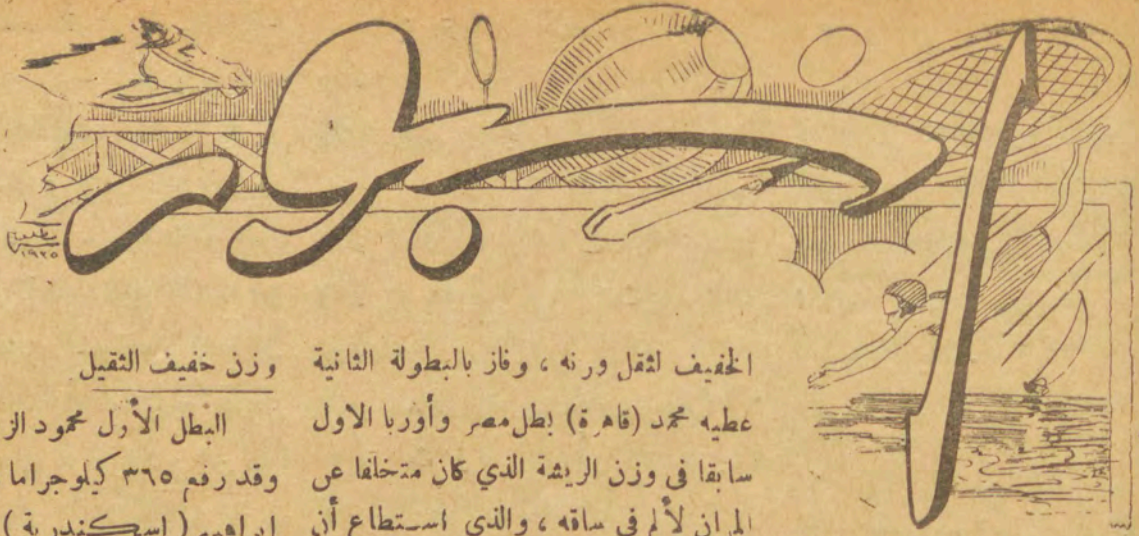 اسبور
١٩٣٥
الخفيف لثقل ورنه ، وفاز بالبطولة الثانية
عطيه محمد (قاهرة) بطل مصر وأوربا الاول
سابقا فى وزن الريشة الذي كان متخلفا عن
المران لألم فى ساقه ، والذي استطاع أن
وزن خفيف الثقيل
البطل الأول محمود الز
وقد رفع ٣٦٥ كيلو جراما
ابراهيم ( اسكندرية )